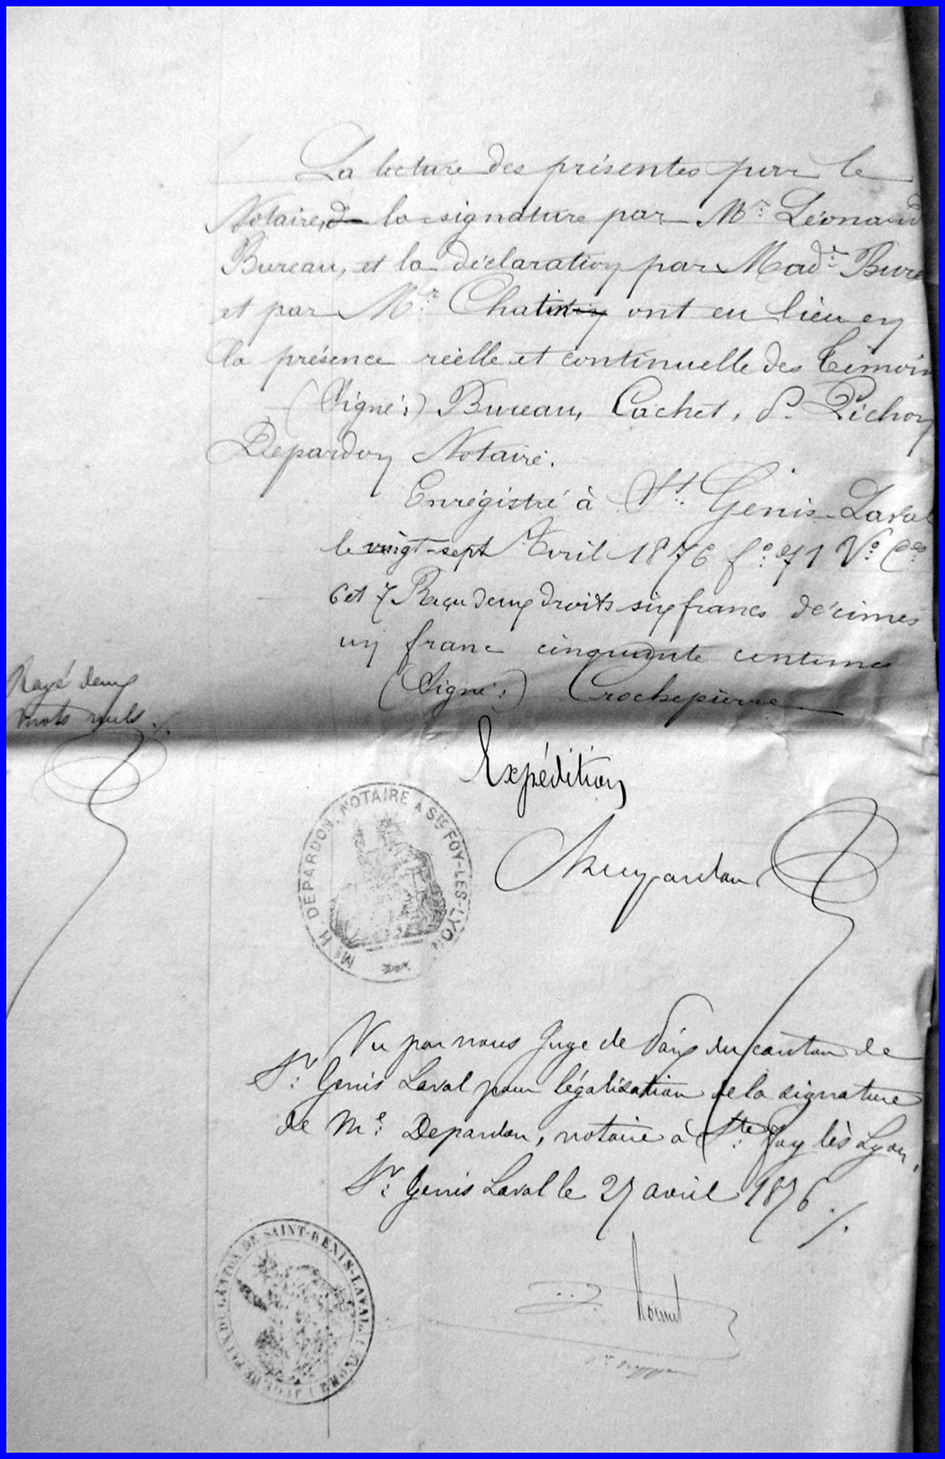 La lecture des présentes par le
Notaire, la signature par Mr. Léonard
Bureau, et la déclaration par Made. Bure
et par Mr. Chatin ont eu lieu en
la présence réelle et continuelle des témoin
(Signé:) Bureau, Cachet, P. Pichon
Depardon Notaire.
Enrégistré à St. Genis-Laval
le vingt-sept Avril 1876 fo. 71 Vo. Ces
6 et 7 Reçu deux droits six francs décimes
un franc cinquante centimes
(Signé:) Crochepierre
Rayé deux
mots nuls ./.
Expédition
Depardon
Me H. DEPARDON, NOTAIRE A STE FOY-LES-LYON
Vu par nous Juge de Paix du canton de
St. Genis Laval pour légalisation de la signature
de Me. Depardon, notaire à Ste. Foy lès Lyon,
St. Genis Laval le 27 avril 1876 ./.
CANTON DE SAINT-GENIS-LAVAL